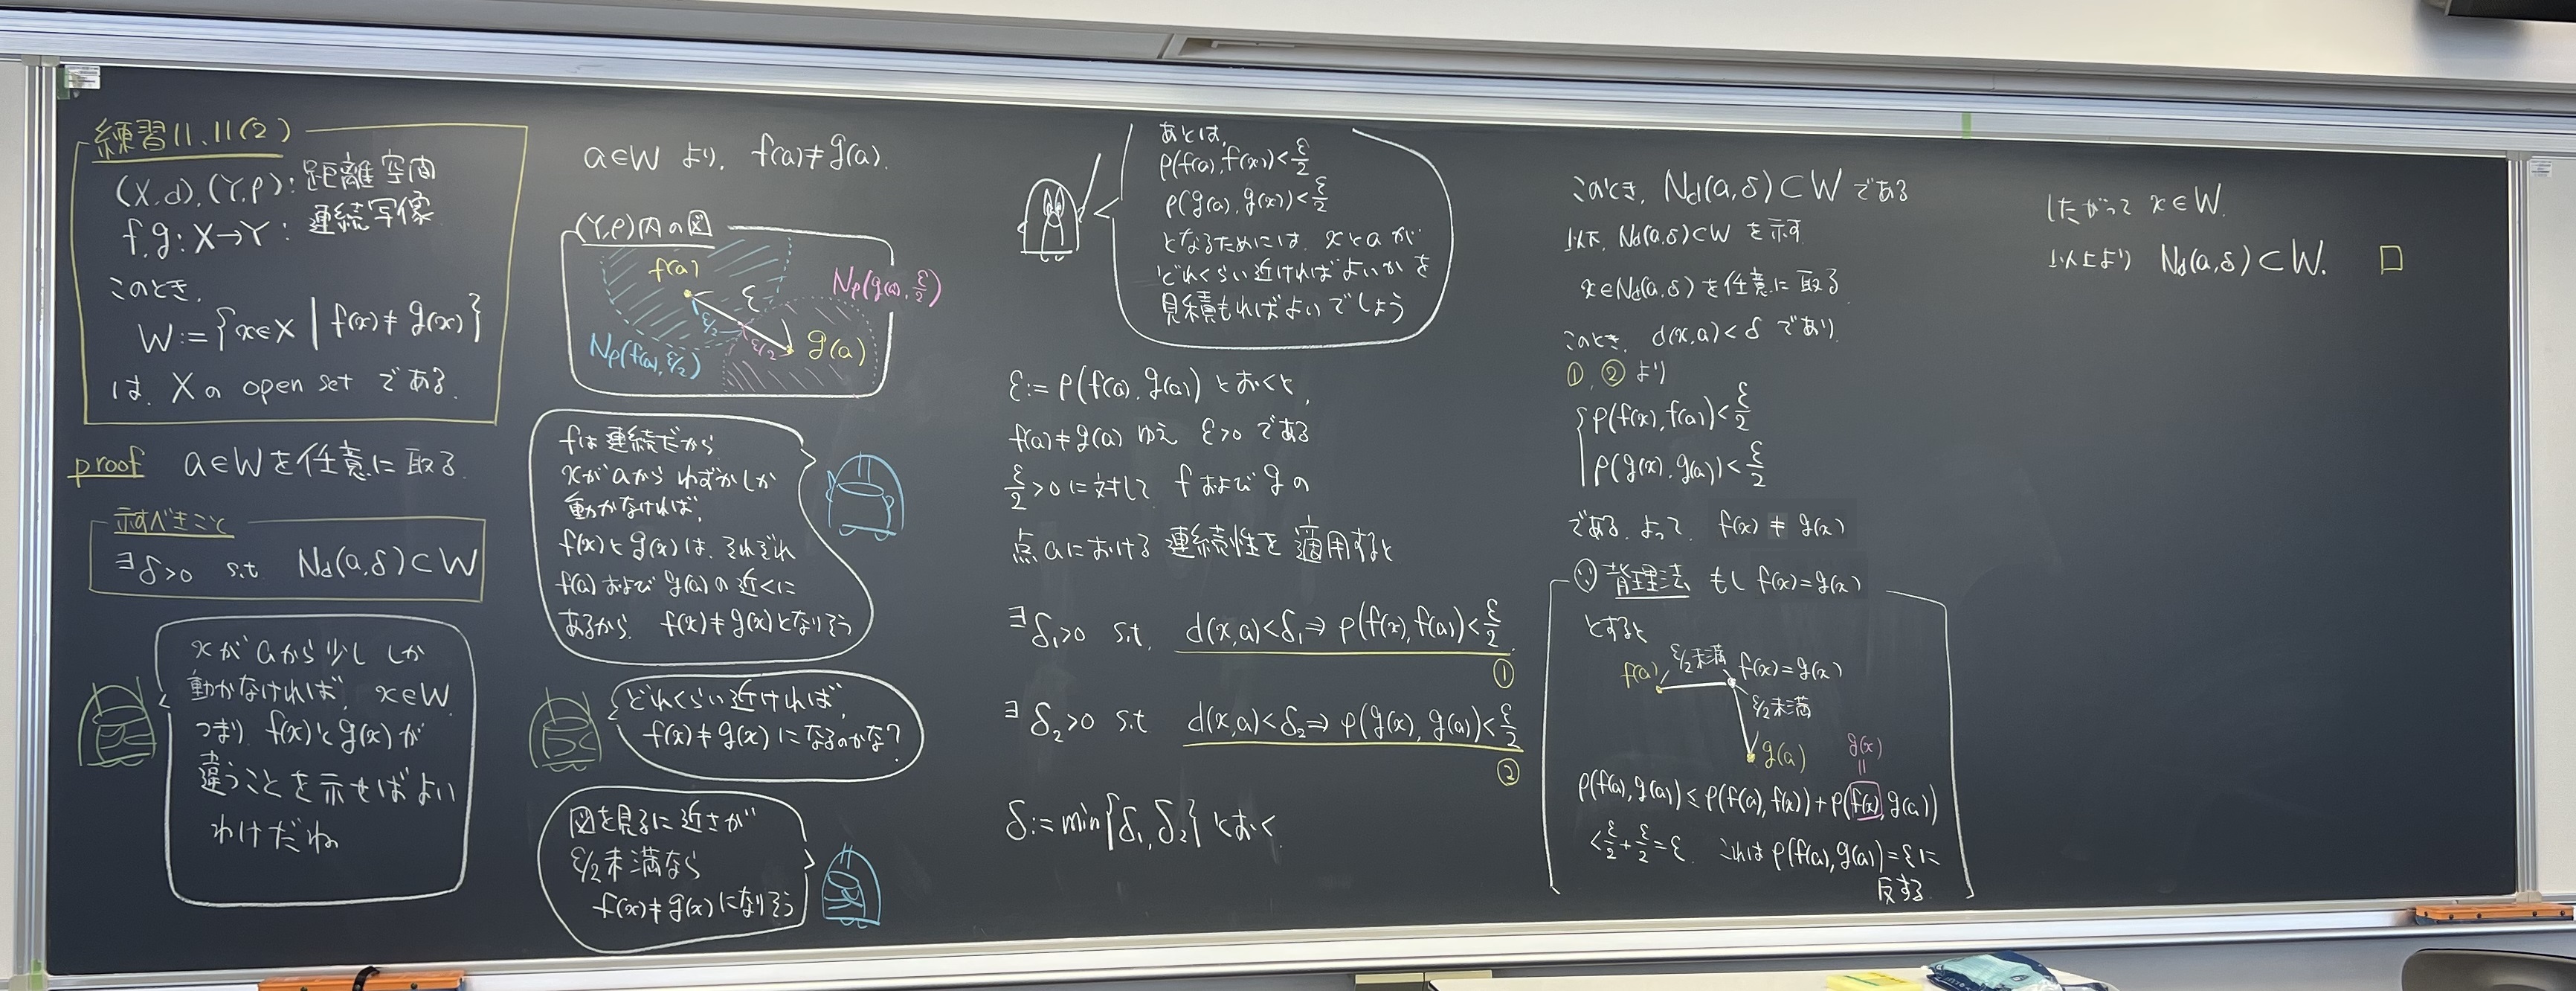 練習11.11(2)
(X,d),(Y,ρ):距離空間
f,g:X→Y:連続写像
このとき,
W:={x∈X | f(x)≠g(x)}
は, Xの open set である.
proof a∈Wを任意に取る.
示すべきこと
∃δ>0 s.t Nd(a,δ)⊂W
xがaから少ししか
動かなければ, x∈W
つまり f(x)とg(x)が
違うことを示せばよい
わけだね
a∈W より, f(a)≠g(a).
(Y,ρ)内の図
f(a)
ε
Nρ(g(a),ε/2)
ε/2
ε/2
g(a)
Nρ(f(a),ε/2)
fは連続だから
xがaからわずかしか
動かなければ,
f(x)とg(x)は, それぞれ
f(a)およびg(a)の近くに
あるから, f(x)≠g(x)となりそう
どれくらい近ければ,
f(x)≠g(x)になるのかな?
図を見るに近さが
ε/2未満なら
f(x)≠g(x)になりそう
あとは,
ρ(f(a),f(x))<ε/2
ρ(g(a),g(x))<ε/2
となるためには, xとaが
どれくらい近ければよいかを
見積もればよいでしょう
ε:=ρ(f(a),g(a))とおくと,
f(a)≠g(a)ゆえ ε>0である
ε/2>0に対して fおよびgの
点aにおける連続性を適用すると
∃δ₁>0 s.t. d(x,a)<δ₁⇒ρ(f(x),f(a))<ε/2
①
∃δ₂>0 s.t d(x,a)<δ₂⇒ρ(g(x),g(a))<ε/2
②
δ:=min{δ₁,δ₂}とおく
このとき, Nd(a,δ)⊂Wである
以下, Nd(a,δ)⊂Wを示す
x∈Nd(a,δ)を任意に取る
このとき, d(x,a)<δであり,
①,②より
ρ(f(x),f(a))<ε/2
ρ(g(x),g(a))<ε/2
である. よって, f(x)≠g(x)
∵ 背理法 もしf(x)=g(x)
とすると
f(a) ε/2未満 f(x)=g(x)
ε/2未満
g(a)
g(x)
=
ρ(f(a),g(a))≤ρ(f(a),f(x))+ρ(f(x),g(a))
<ε/2+ε/2=ε. これはρ(f(a),g(a))=εに
反する.
したがって x∈W.
以上より Nd(a,δ)⊂W. □